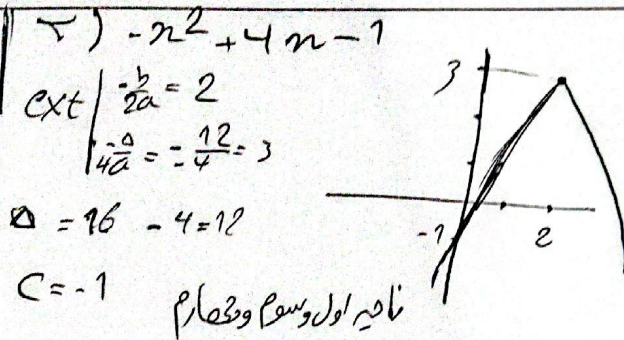 ۲) -x² + 4x - 1
ext | -b/2a = 2
-Δ/4a = - 12/-4 = 3
Δ = 16 - 4 = 12
C = -1
ناحیه اول و سوم و چهارم
3
-1
2